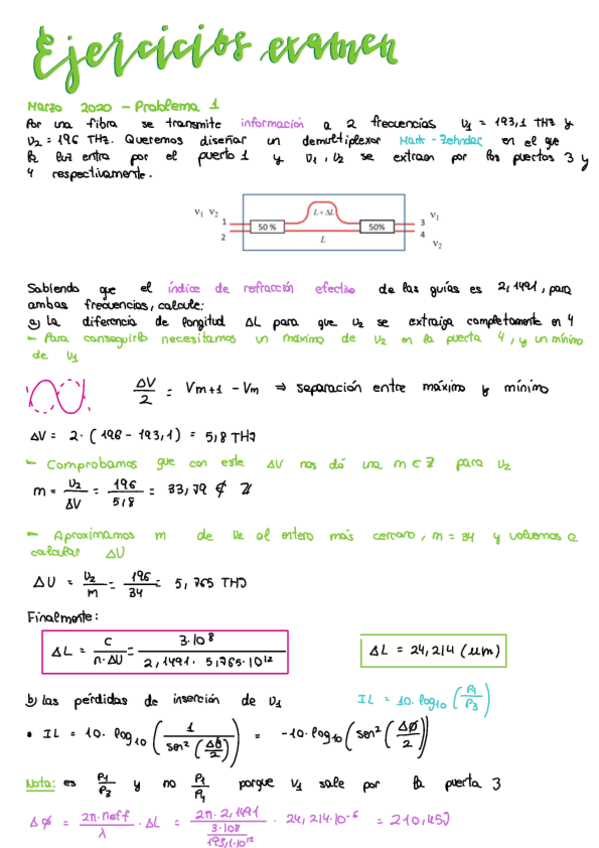 Ejercicios examen
Marzo 2020 - Problema 1
Por una fibra se transmite información a 2 frecuencias ν1 = 193,1 THz y
ν2 = 196 THz. Queremos diseñar un demultiplexor Mach-Zehnder en el que
la luz entra por el puerto 1 y ν1, ν2 se extraen por los puertos 3 y
4 respectivamente.
ν1 ν2 1 50 % L+ΔL 50% 3 ν1
2 L 4 ν2
Sabiendo que el índice de refracción efectivo de las guías es 2,1491, para
ambas frecuencias, calcule:
a) La diferencia de longitud ΔL para que ν2 se extraiga completamente en 4
- Para conseguirlo necesitamos un máximo de ν2 en la puerta 4, y un mínimo
de ν1
Δν/2 = νm+1 - νm ⇒ separación entre máximo y mínimo
Δν = 2 · (196 - 193,1) = 5,8 THz
- Comprobamos que con este Δν nos dá una m ∈ Z para ν2
m = ν2/Δν = 196/5,8 = 33,79 ∉ Z
- Aproximamos m de ν2 al entero más cercano, m = 34 y volvemos a
calcular Δν
Δν = ν2/m = 196/34 = 5,765 THz
Finalmente:
ΔL = c/(n·Δν) = 3·10^8/(2,1491 · 5,765·10^12)
ΔL = 24,214 (μm)
b) las pérdidas de inserción de ν1
IL = 10·log10 (P1/P3)
• IL = 10· log10 (1/(sen²(Δϕ/2))) = -10·log10 (sen²(Δϕ/2))
Nota: es P1/P3 y no P1/P4 porque ν1 sale por la puerta 3
Δϕ = 2π·neff/λ · ΔL = 2π·2,1491/(3·10^8/193,1·10^12) · 24,214·10^-6 = 210,459